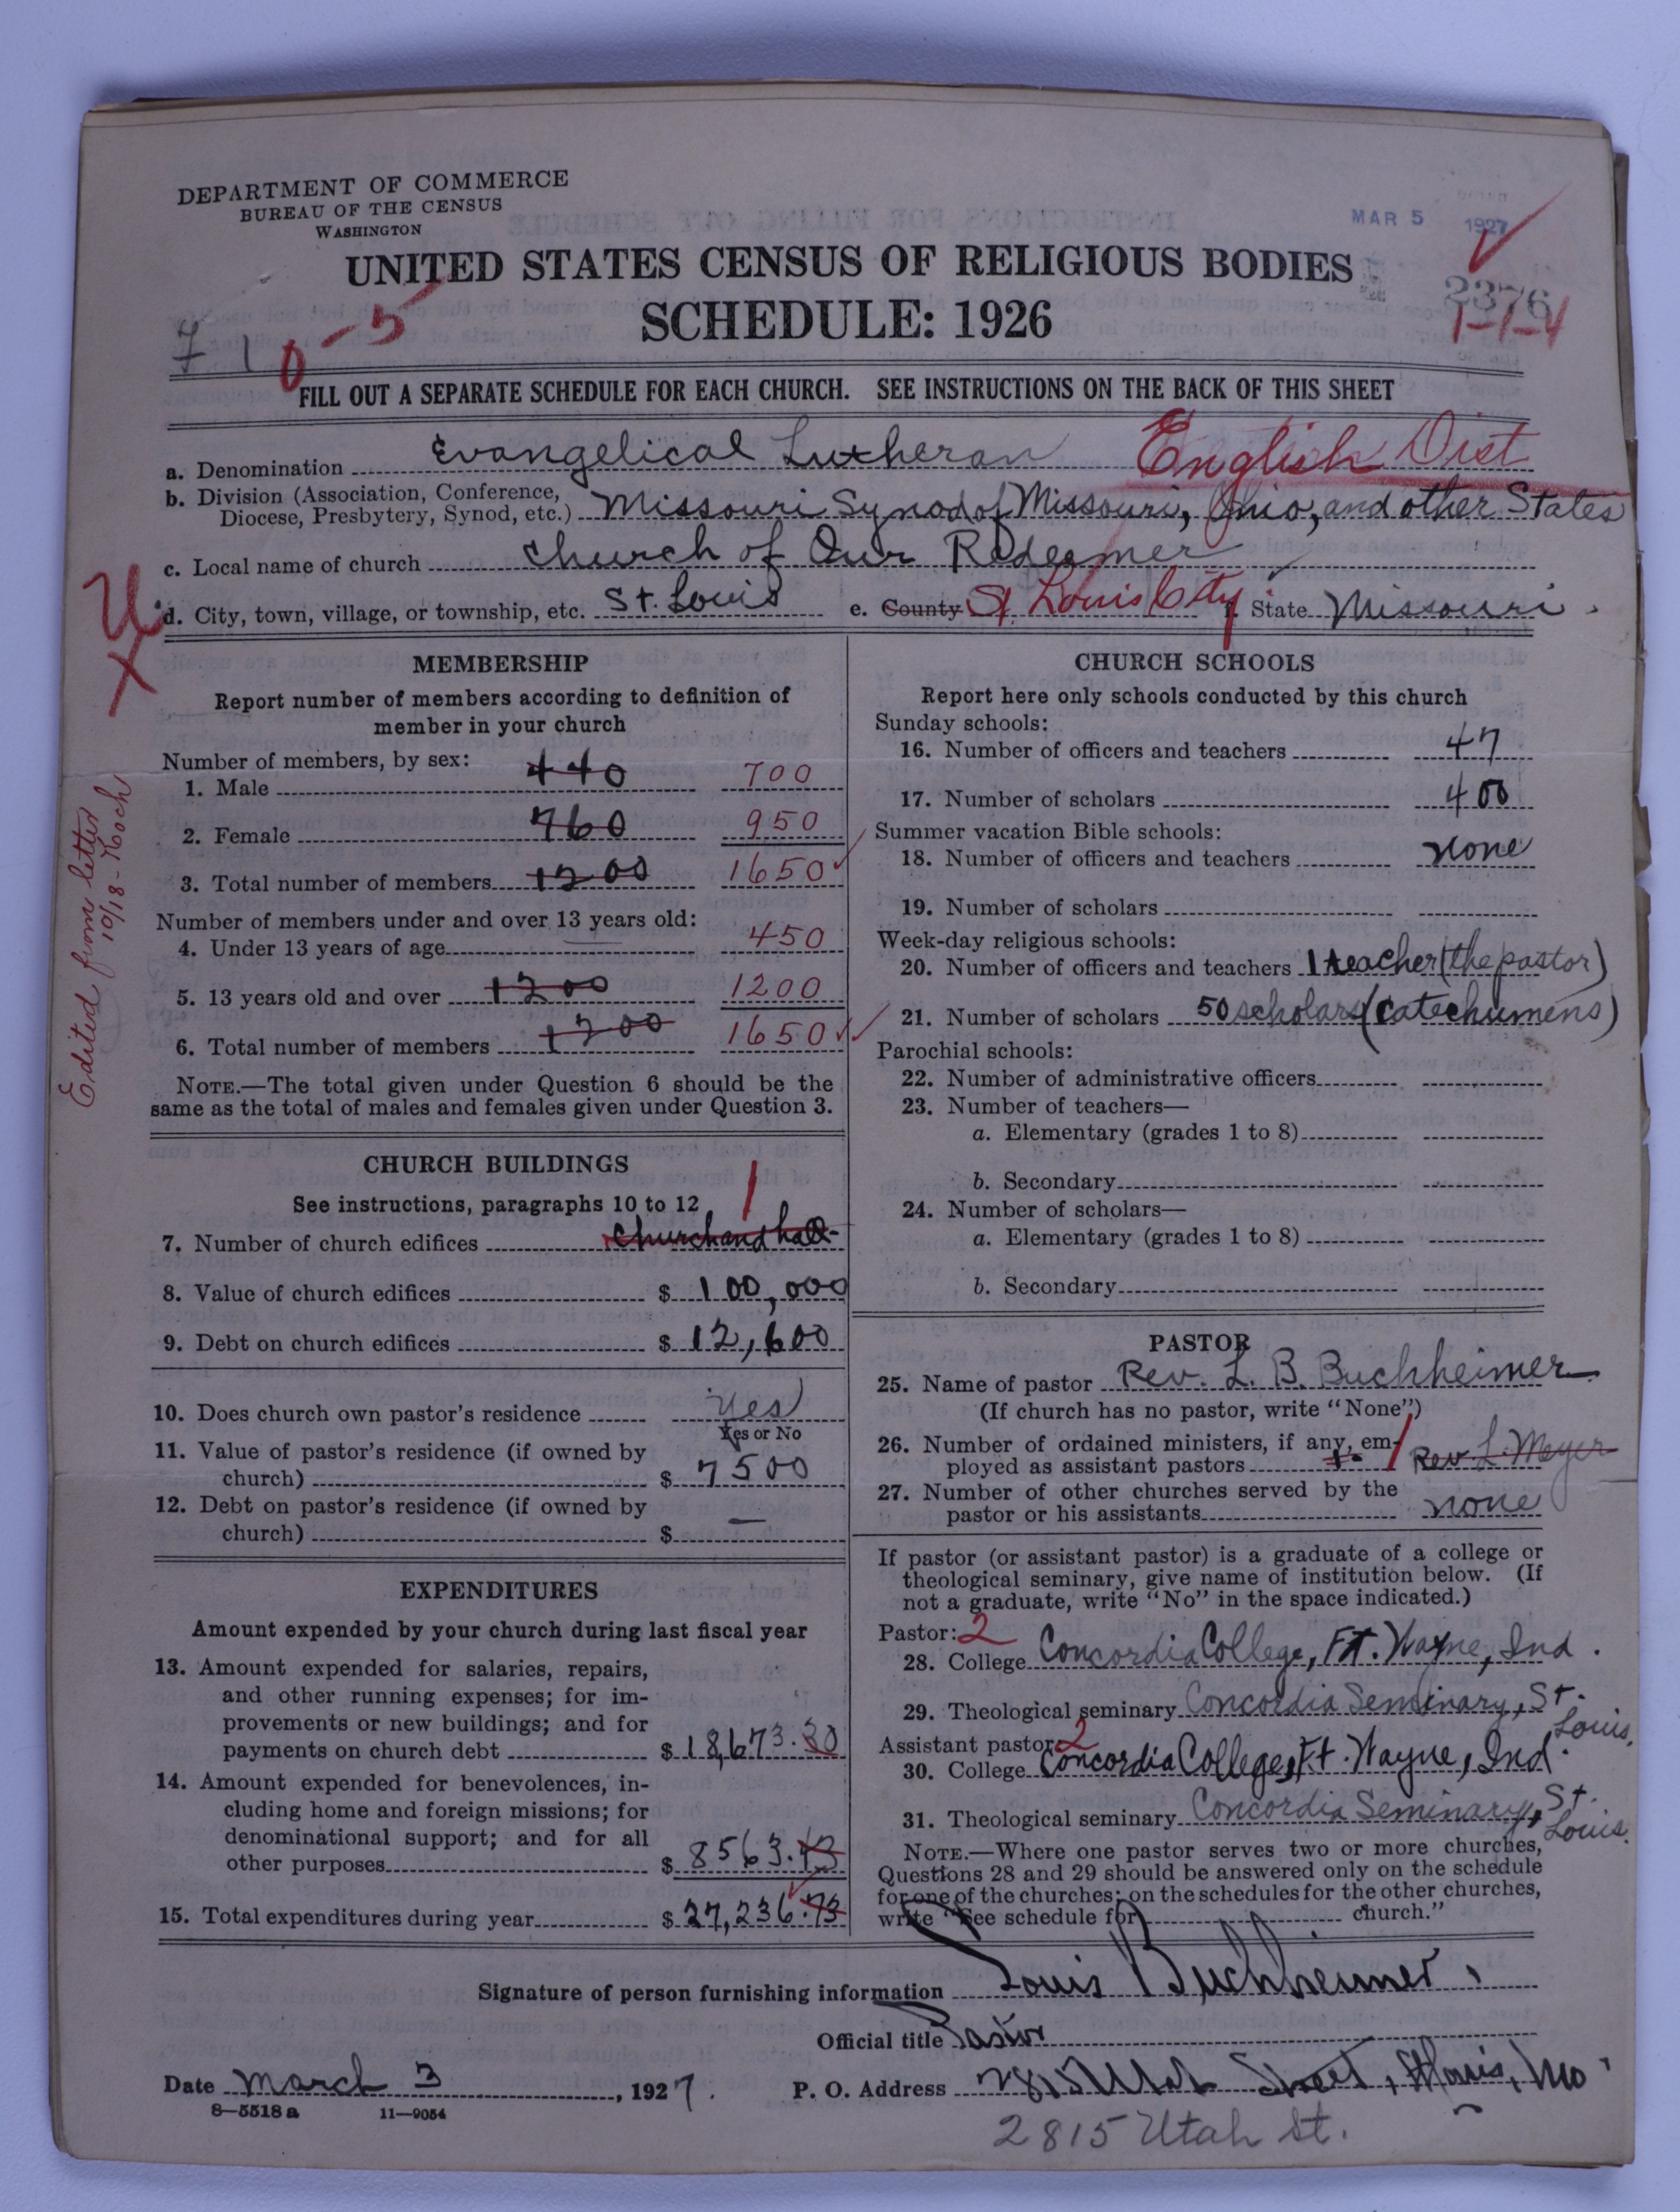 DEPARTMENT OF COMMERCE
BUREAU OF THE CENSUS
WASHINGTON
MAR 5 1927
UNITED STATES CENSUS OF RELIGIOUS BODIES
SCHEDULE: 1926
2376
1-1-4
7 1 0-5
FILL OUT A SEPARATE SCHEDULE FOR EACH CHURCH. SEE INSTRUCTIONS ON THE BACK OF THIS SHEET
a. Denomination Evangelical Lutheran English Dist
b. Division (Association, Conference, Diocese, Presbytery, Synod, etc.) Missouri Synod of Missouri, Ohio, and other States
c. Local name of church Church of Our Redeemer
d. City, town, village, or township, etc. St. Louis e. County St. Louis City f. State Missouri.
U
X
Edited from letter
10/18-Koch
MEMBERSHIP
Report number of members according to definition of
member in your church
Number of members, by sex:
1. Male 440 700
2. Female 760 950
3. Total number of members 1200 1650
Number of members under and over 13 years old:
4. Under 13 years of age 450
5. 13 years old and over 1200 1200
6. Total number of members 1200 1650
NOTE.—The total given under Question 6 should be the
same as the total of males and females given under Question 3.
CHURCH BUILDINGS
See instructions, paragraphs 10 to 12
7. Number of church edifices Church and hall 1
8. Value of church edifices $ 100,000
9. Debt on church edifices $ 12,600
10. Does church own pastor's residence Yes
Yes or No
11. Value of pastor's residence (if owned by
church) $ 7500
12. Debt on pastor's residence (if owned by
church) $ —
EXPENDITURES
Amount expended by your church during last fiscal year
13. Amount expended for salaries, repairs,
and other running expenses; for im-
provements or new buildings; and for
payments on church debt $ 18,673.30
14. Amount expended for benevolences, in-
cluding home and foreign missions; for
denominational support; and for all
other purposes $ 8563.43
15. Total expenditures during year $ 27,236.73
CHURCH SCHOOLS
Report here only schools conducted by this church
Sunday schools:
16. Number of officers and teachers 47
17. Number of scholars 400
Summer vacation Bible schools:
18. Number of officers and teachers none
19. Number of scholars
Week-day religious schools:
20. Number of officers and teachers 1 teacher (the pastor)
21. Number of scholars 50 scholars (catechumens)
Parochial schools:
22. Number of administrative officers
23. Number of teachers—
a. Elementary (grades 1 to 8)
b. Secondary
24. Number of scholars—
a. Elementary (grades 1 to 8)
b. Secondary
PASTOR
25. Name of pastor Rev. L. B. Buchheimer
(If church has no pastor, write "None")
26. Number of ordained ministers, if any, em-
ployed as assistant pastors 1. 1 Rev. L. Meyer
27. Number of other churches served by the
pastor or his assistants none
If pastor (or assistant pastor) is a graduate of a college or
theological seminary, give name of institution below. (If
not a graduate, write "No" in the space indicated.)
Pastor: 2
28. College Concordia College, Ft. Wayne, Ind.
29. Theological seminary Concordia Seminary, St. Louis.
Assistant pastor: 2
30. College Concordia College, Ft. Wayne, Ind.
31. Theological seminary Concordia Seminary, St. Louis.
NOTE.—Where one pastor serves two or more churches,
Questions 28 and 29 should be answered only on the schedule
for one of the churches; on the schedules for the other churches,
write "See schedule for church."
Signature of person furnishing information Louis Buchheimer.
Official title Pastor
Date March 3, 1927. P. O. Address 2815 Utah Street, St Louis, Mo.
8—5518 a 11—9054
2815 Utah St.